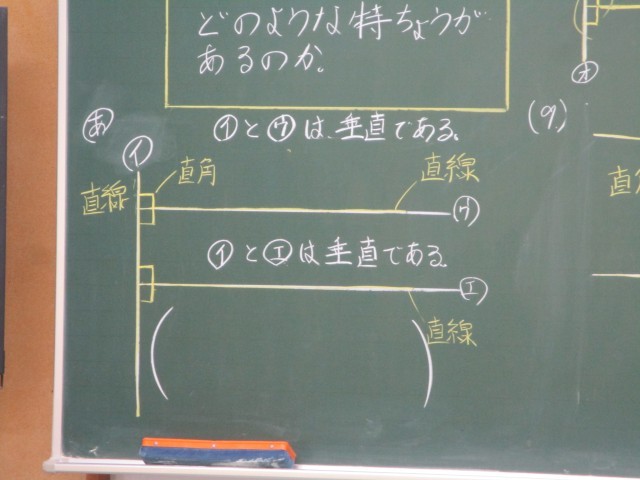 どのような特ちょうが
あるのか。
あ
イとウは、垂直である。
イ
直線
直角
直線
ウ
イとエは垂直である。
エ
直線
オ
(9)